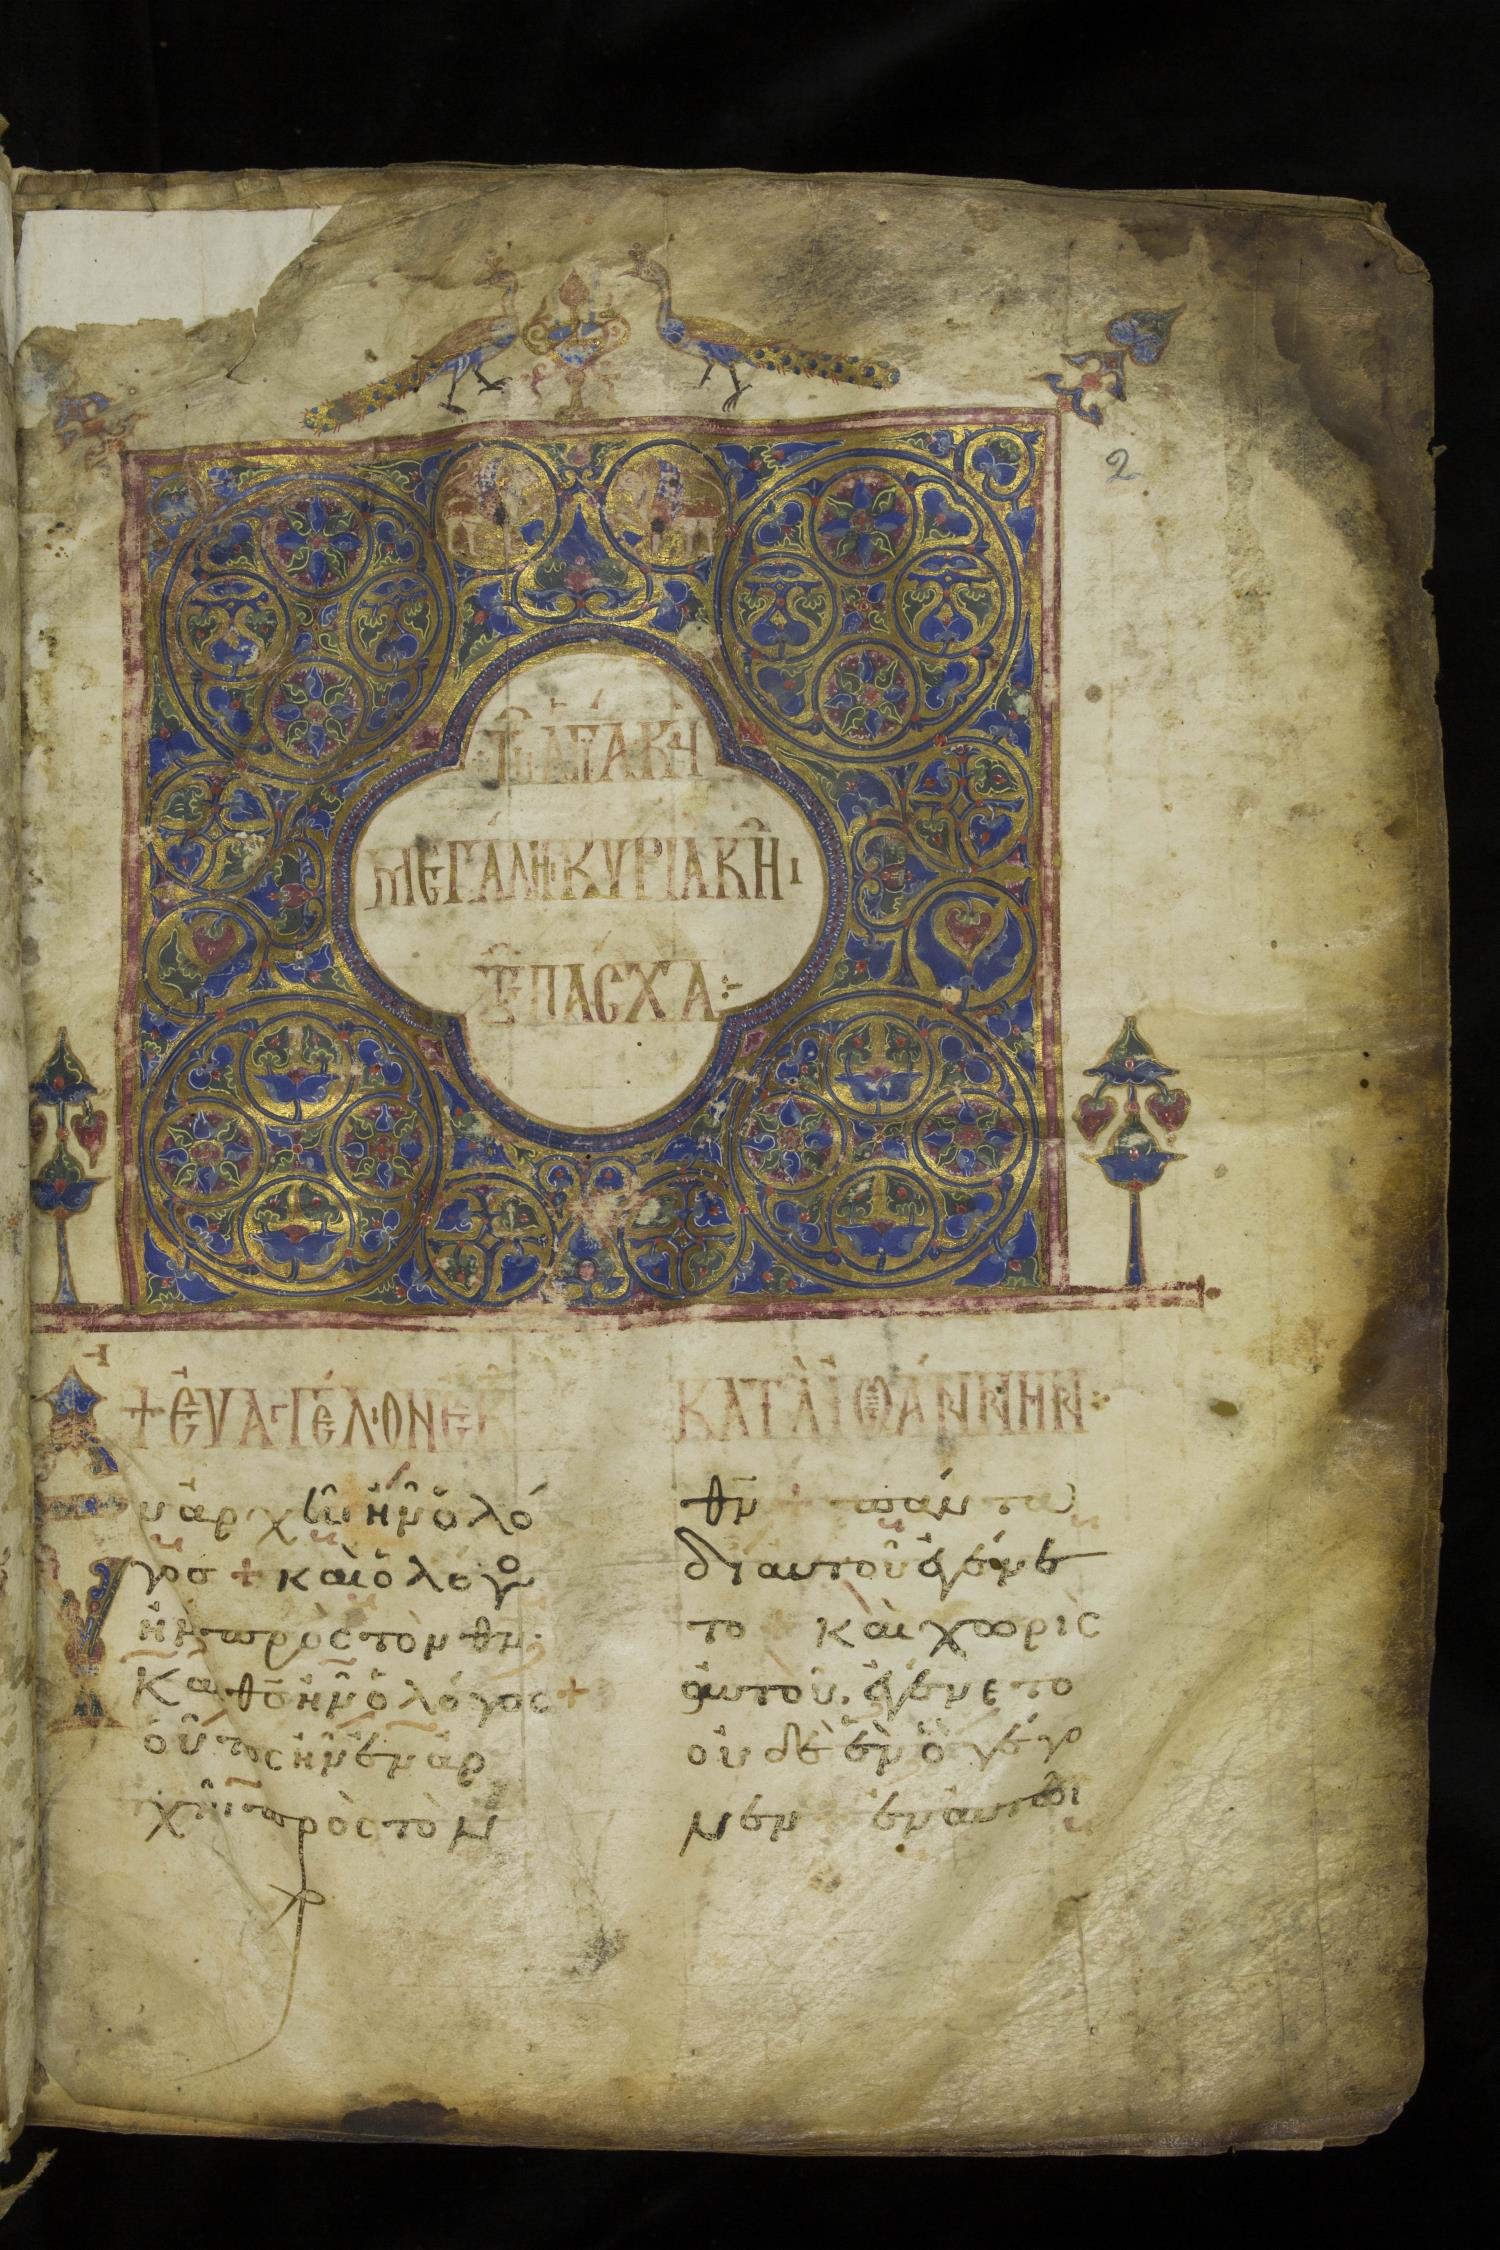 2
Τῇ ἁγίᾳ κ(αὶ)
ΜΕΓΆΛΗ ΚΥΡΙΑΚΗ͂Ι
τ(οῦ) ΠΆΣΧΑ:
+ ἘΥΑΓΓΈΛΙΟΝ ἘΚ
τοῦ
ΚΑΤᾺ ἸΩΆΝΝΗΝ:
Ἐν ἀρχῆι ἦν ὁ λό
γοσ + καὶ ὁ λόγο
ἦν πρὸς τὸν θν·
Καὶ θς ἦν ὁ λόγος +
οὗτος ἦν ἐν ἀρ
χῆι πρὸς τὸν
θν + πάντα
δι αυτοῦ ἐγένε
το + καὶ χωρὶς
αυτοῦ, ἐγένετο
ουδὲ ἓν ὃ γέγο
νεν + ἐν αυτῶι